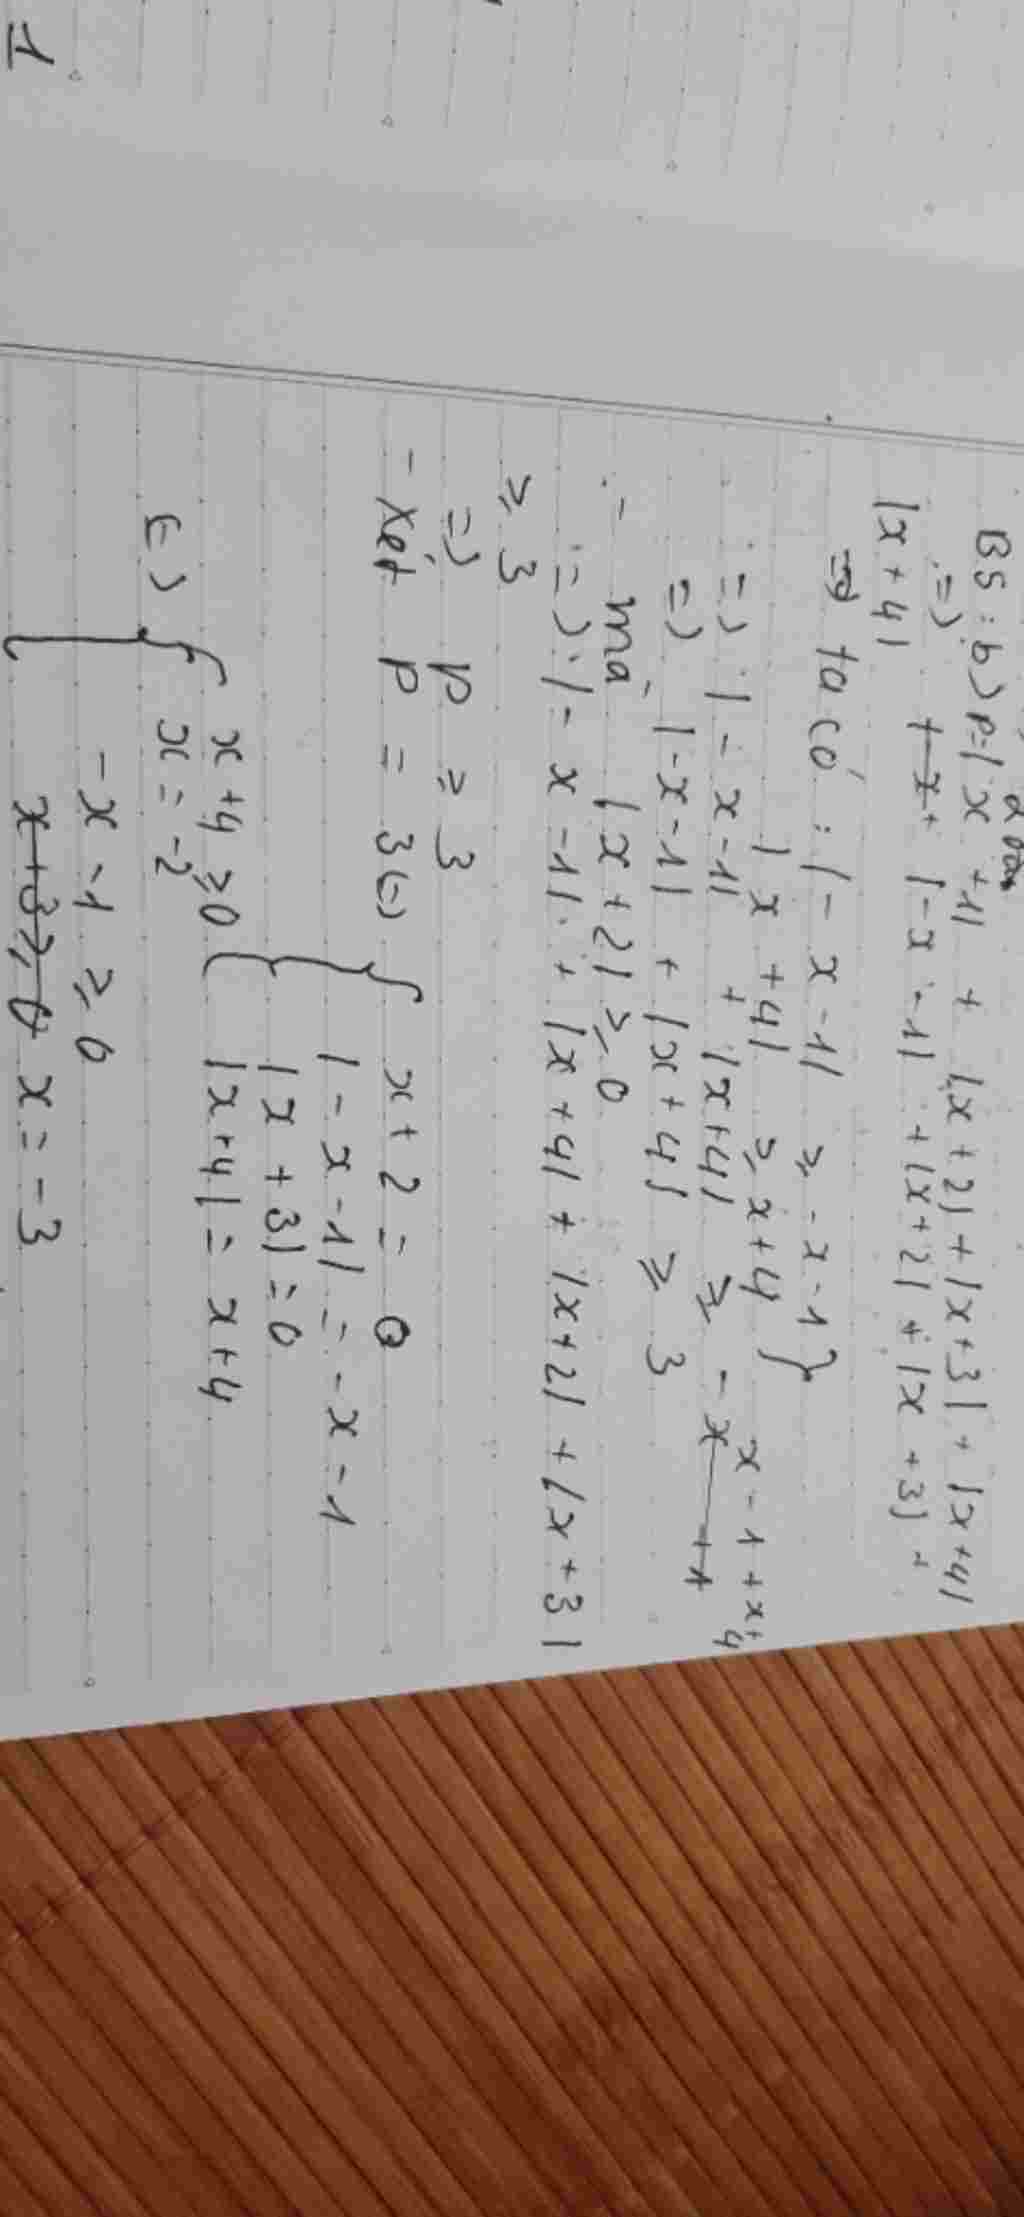 B5: b) P=|x+1| + |x+2| + |x+3| + |x+4|
=) |-x-1| + |x+2| + |x+3| +
|x+4|
=) ta có: |-x-1| ≥ -x-1 }
|x+4| ≥ x+4
=) |-x-1| + |x+4| ≥ -x-1+x+4
=) |-x-1| + |x+4| ≥ 3
- mà |x+2| ≥ 0
=) |-x-1| + |x+4| + |x+2| + |x+3|
≥ 3
=) P ≥ 3
- Xét P = 3 (-) { x+2 = 0
|-x-1| = -x-1
|x+3| = 0
x+4 ≥ 0 { |x+4| = x+4
(-) { x = -2
-x-1 ≥ 0
x+3 ≥ 0 x = -3
1